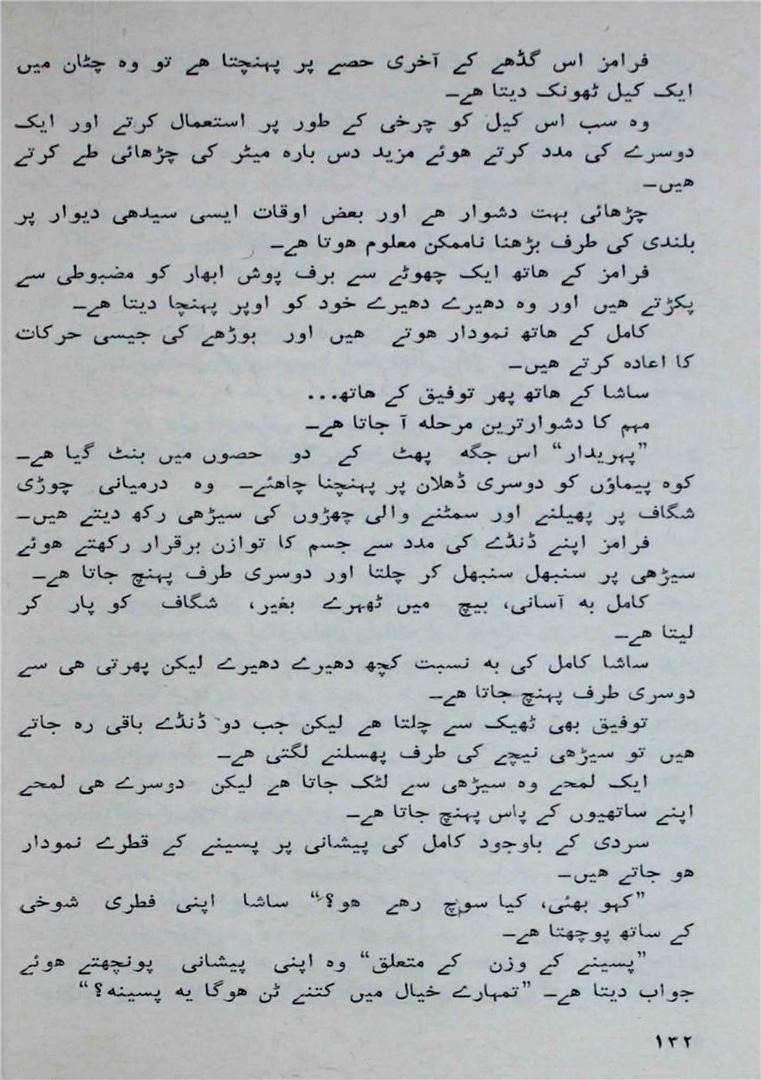 فرامز اس گڈھے کے آخری حصے پر پہنچتا ھے تو وہ چٹان میں
ایک کیل ٹھونک دیتا ھے۔
وہ سب اس کیل کو چرخی کے طور پر استعمال کرتے اور ایک
دوسرے کی مدد کرتے ھوئے مزید دس بارہ میٹر کی چڑھائی طے کرتے
ھیں۔
چڑھائی بہت دشوار ھے اور بعض اوقات ایسی سیدھی دیوار پر
بلندی کی طرف بڑھنا ناممکن معلوم ھوتا ھے۔
فرامز کے ھاتھ ایک چھوٹے سے برف پوش ابھار کو مضبوطی سے
پکڑتے ھیں اور وہ دھیرے دھیرے خود کو اوپر پہنچا دیتا ھے۔
کامل کے ھاتھ نمودار ھوتے ھیں اور بوڑھے کی جیسی حرکات
کا اعادہ کرتے ھیں۔
ساشا کے ھاتھ پھر توفیق کے ھاتھ...
مہم کا دشوارترین مرحلہ آ جاتا ھے۔
”پہریدار“ اس جگہ پھٹ کے دو حصوں میں بنٹ گیا ھے۔
کوہ پیماؤں کو دوسری ڈھلان پر پہنچنا چاھئے۔ وہ درمیانی چوڑی
شگاف پر پھیلنے اور سمٹنے والی چھڑوں کی سیڑھی رکھ دیتے ھیں۔
فرامز اپنے ڈنڈے کی مدد سے جسم کا توازن برقرار رکھتے ھوئے
سیڑھی پر سنبھل سنبھل کر چلتا اور دوسری طرف پہنچ جاتا ھے۔
کامل بہ آسانی، بیچ میں ٹھہرے بغیر، شگاف کو پار کر
لیتا ھے۔
ساشا کامل کی بہ نسبت کچھ دھیرے دھیرے لیکن پھرتی ھی سے
دوسری طرف پہنچ جاتا ھے۔
توفیق بھی ٹھیک سے چلتا ھے لیکن جب دو ڈنڈے باقی رہ جاتے
ھیں تو سیڑھی نیچے کی طرف پھسلنے لگتی ھے۔
ایک لمحے وہ سیڑھی سے لٹک جاتا ھے لیکن دوسرے ھی لمحے
اپنے ساتھیوں کے پاس پہنچ جاتا ھے۔
سردی کے باوجود کامل کی پیشانی پر پسینے کے قطرے نمودار
ھو جاتے ھیں۔
”کہو بھئی، کیا سوچ رھے ھو؟“ ساشا اپنی فطری شوخی
کے ساتھ پوچھتا ھے۔
”پسینے کے وزن کے متعلق“ وہ اپنی پیشانی پونچھتے ھوئے
جواب دیتا ھے۔ ”تمہارے خیال میں کتنے ٹن ھوگا یہ پسینہ؟“
۱۳۲